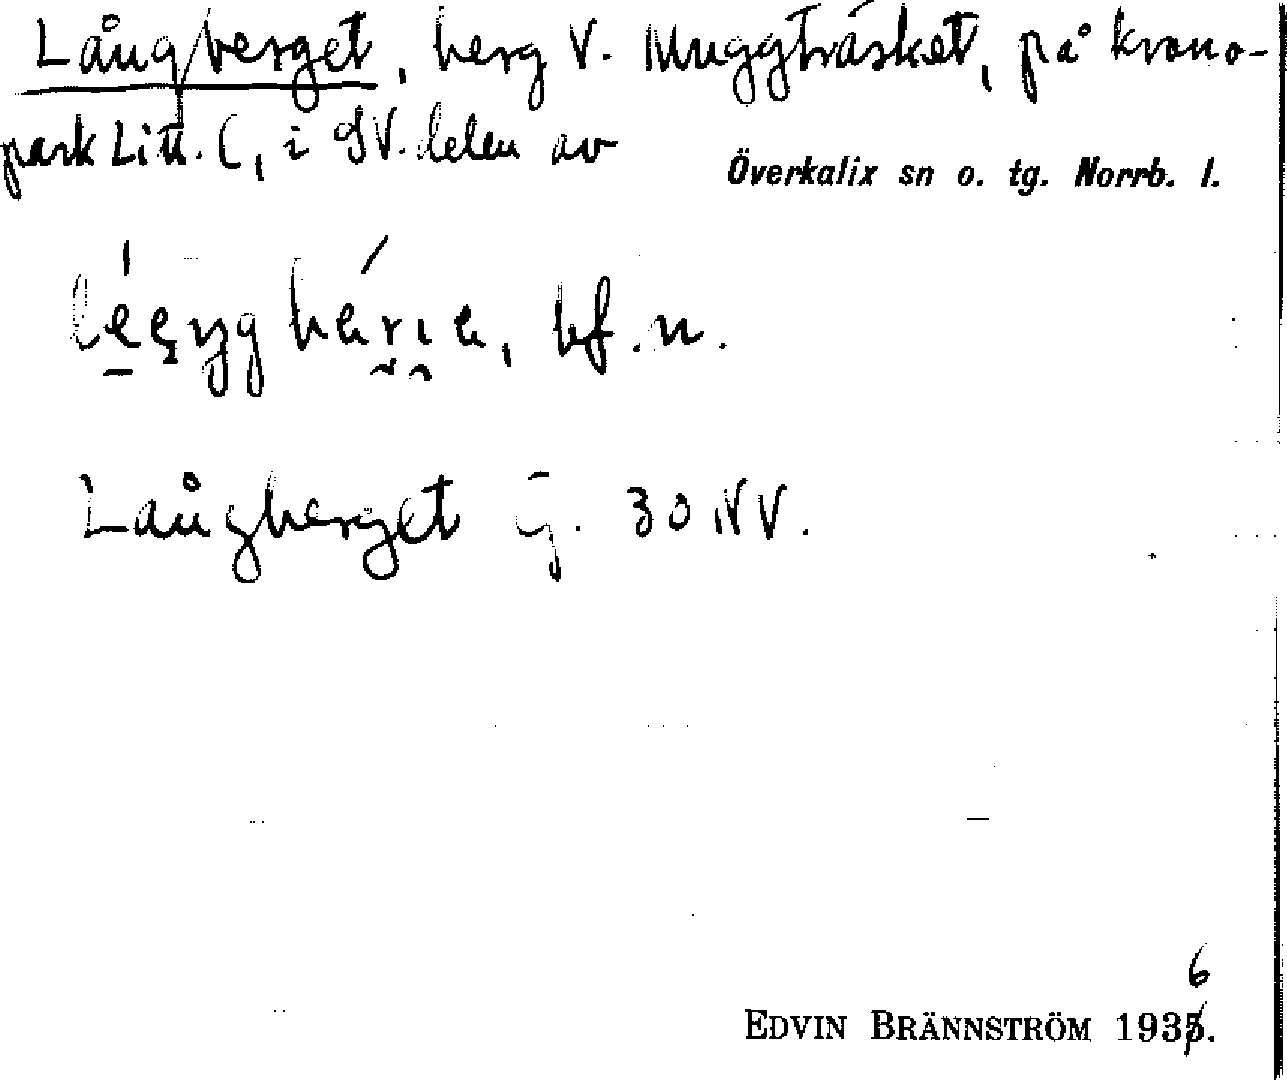 Lång/berget, berg V. Muggträsket, på krono-
park Litt. C, i SV. delen av
Överkalix sn o. tg. Norrb. l.
bf. n.
Långberget G. 30 NV.
6
EDVIN BRÄNNSTRÖM 1935.